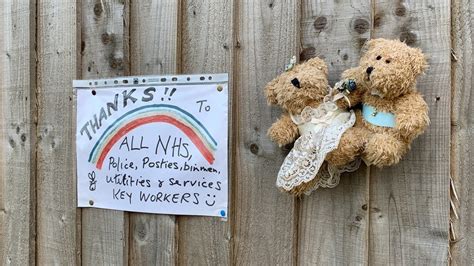 THANKS!! To
ALL NHS,
Police, Posties, binmen,
utilities & services
KEY WORKERS